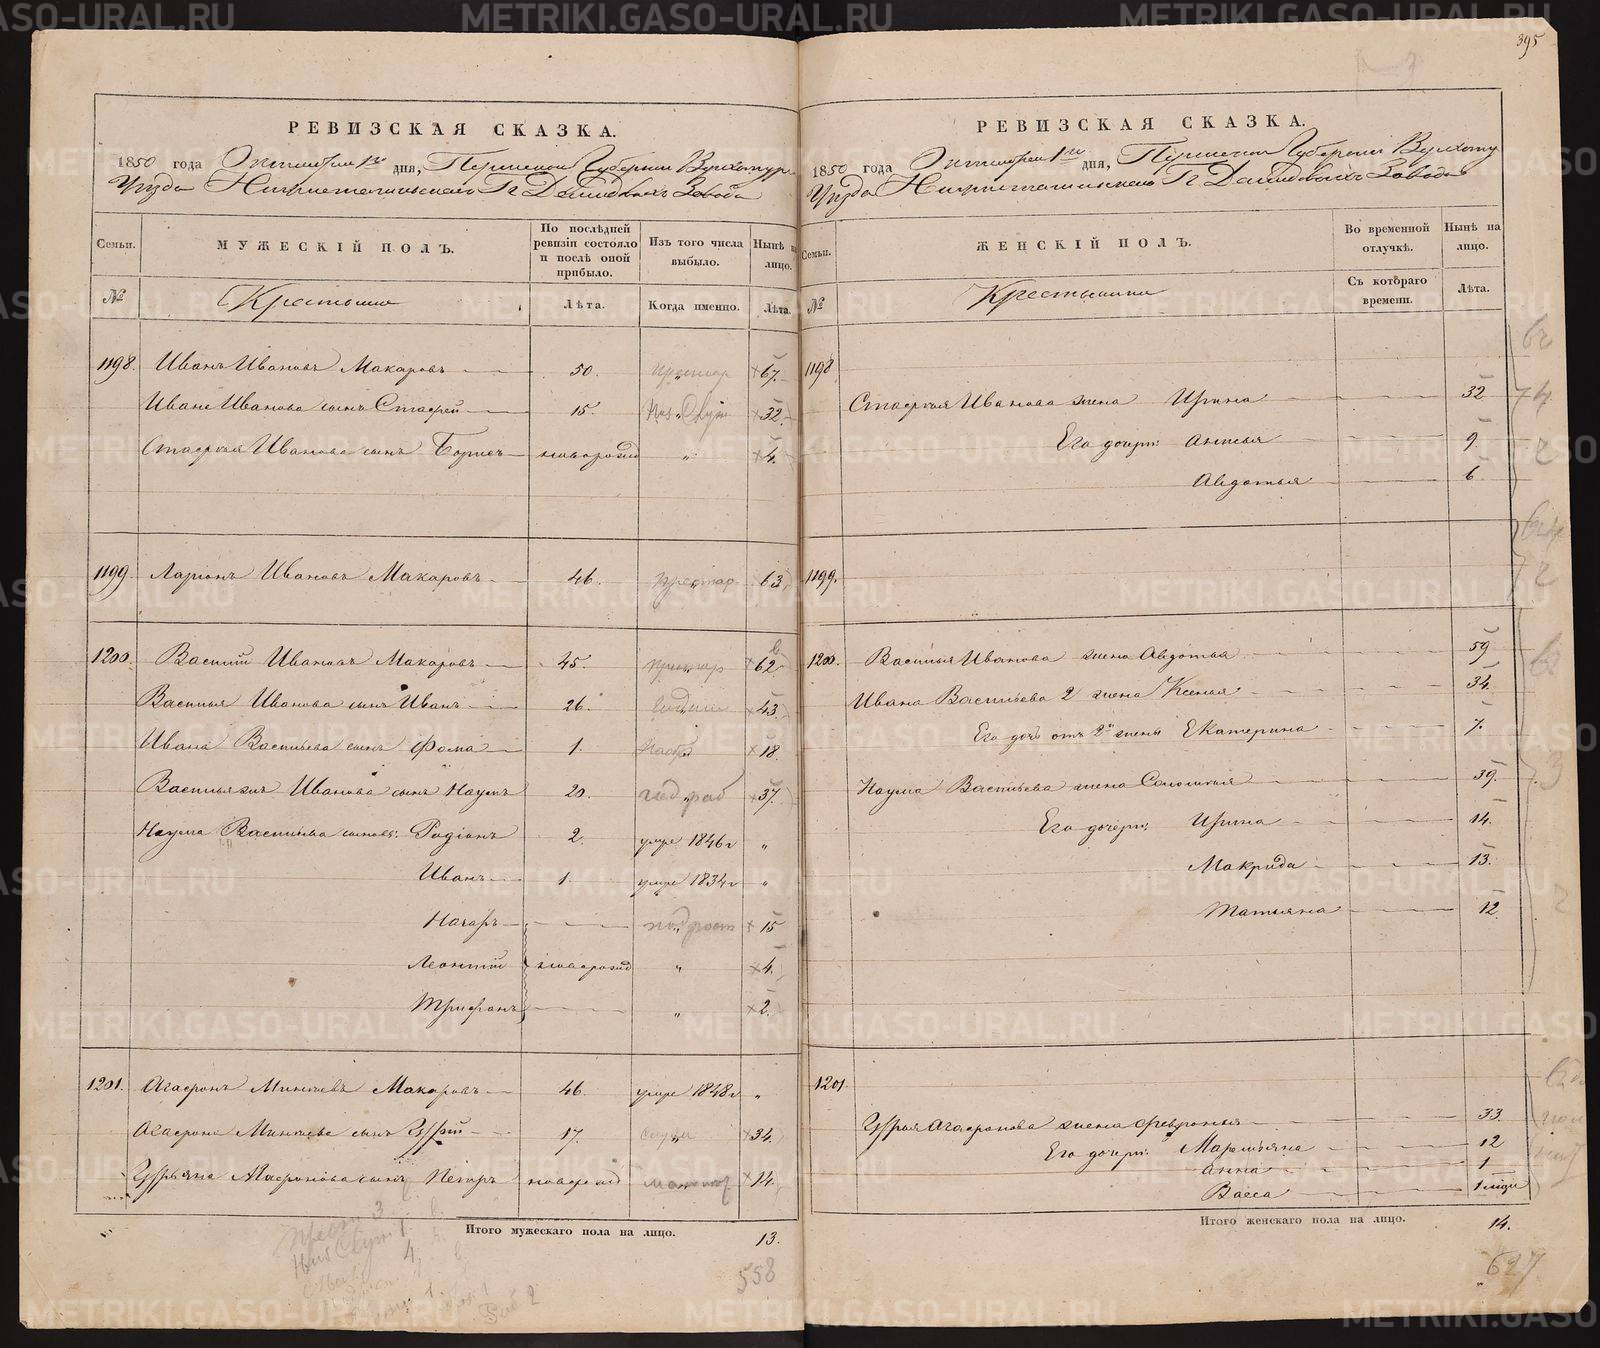 395
РЕВИЗСКАЯ СКАЗКА.
1850 года Октября 1го дня, Пермской Губернии Верхотур.
Уезда Нижнетагильскаго Г. Демидовыхъ Завода
Семьи. МУЖЕСКІЙ ПОЛЪ. По послѣдней ревизіи состояло и послѣ оной прибыло. Изъ того числа выбыло. Нынѣ на лицо.
№ Крестьяне Лѣта. Когда именно. Лѣта.
1198. Иванъ Ивановъ Макаровъ 50. престар 67.
Ивана Иванова сынъ Стафей 15. 32.
Стафея Иванова сынъ Борисъ новорожд „ 4.
1199 Ларіонъ Ивановъ Макаровъ 46. престар 63
1200. Василій Ивановъ Макаровъ 45. престар 62
Василья Иванова сынъ Иванъ 26. 43.
Ивана Васильева сынъ Фома 1. 18.
Василья Иванова сынъ Наумъ 20. 37.
Наума Васильева сыновья: Родіонъ 2. умре 1846 г „
Иванъ 1. умре 1834 г „
Назаръ подрост 15
Леонтій новорожд „ 4.
Трифонъ „ 2.
1201. Агафонъ Минѣевъ Макаровъ 46. умре 1848 г „
Агафона Минѣева сынъ Гурій 17. 34.
Гурьяна Агафонова сынъ Петръ новорожд 14.
Итого мужескаго пола на лицо. 13.
558
РЕВИЗСКАЯ СКАЗКА.
1850 года Октября 1го дня, Пермской Губерніи Верхоту
Уезда Нижнетагильскаго Г. Демидовыхъ Завода
Семьи. ЖЕНСКІЙ ПОЛЪ. Во временной отлучкѣ. Нынѣ на лицо.
№ Крестьянки Съ котораго времени. Лѣта.
1198
Стафея Иванова жена Ирина 32
Его дочери: Анисья 9.
Авдотья 6
1199.
1200. Василья Иванова жена Авдотья 59
Ивана Васильева 2 жена Ксенья 34.
Его дочь отъ 2й жены Екатерина 7.
Наума Васильева жена Соломія 39.
Его дочери: Ирина 14.
Макрида 13.
Татьяна 12
1201
Гурья Агафонова жена Февронья 33.
Его дочери: Мартьяна 12
Анна 1
Васса
Итого женскаго пола на лицо. 14.
627
METRIKI.GASO-URAL.RU